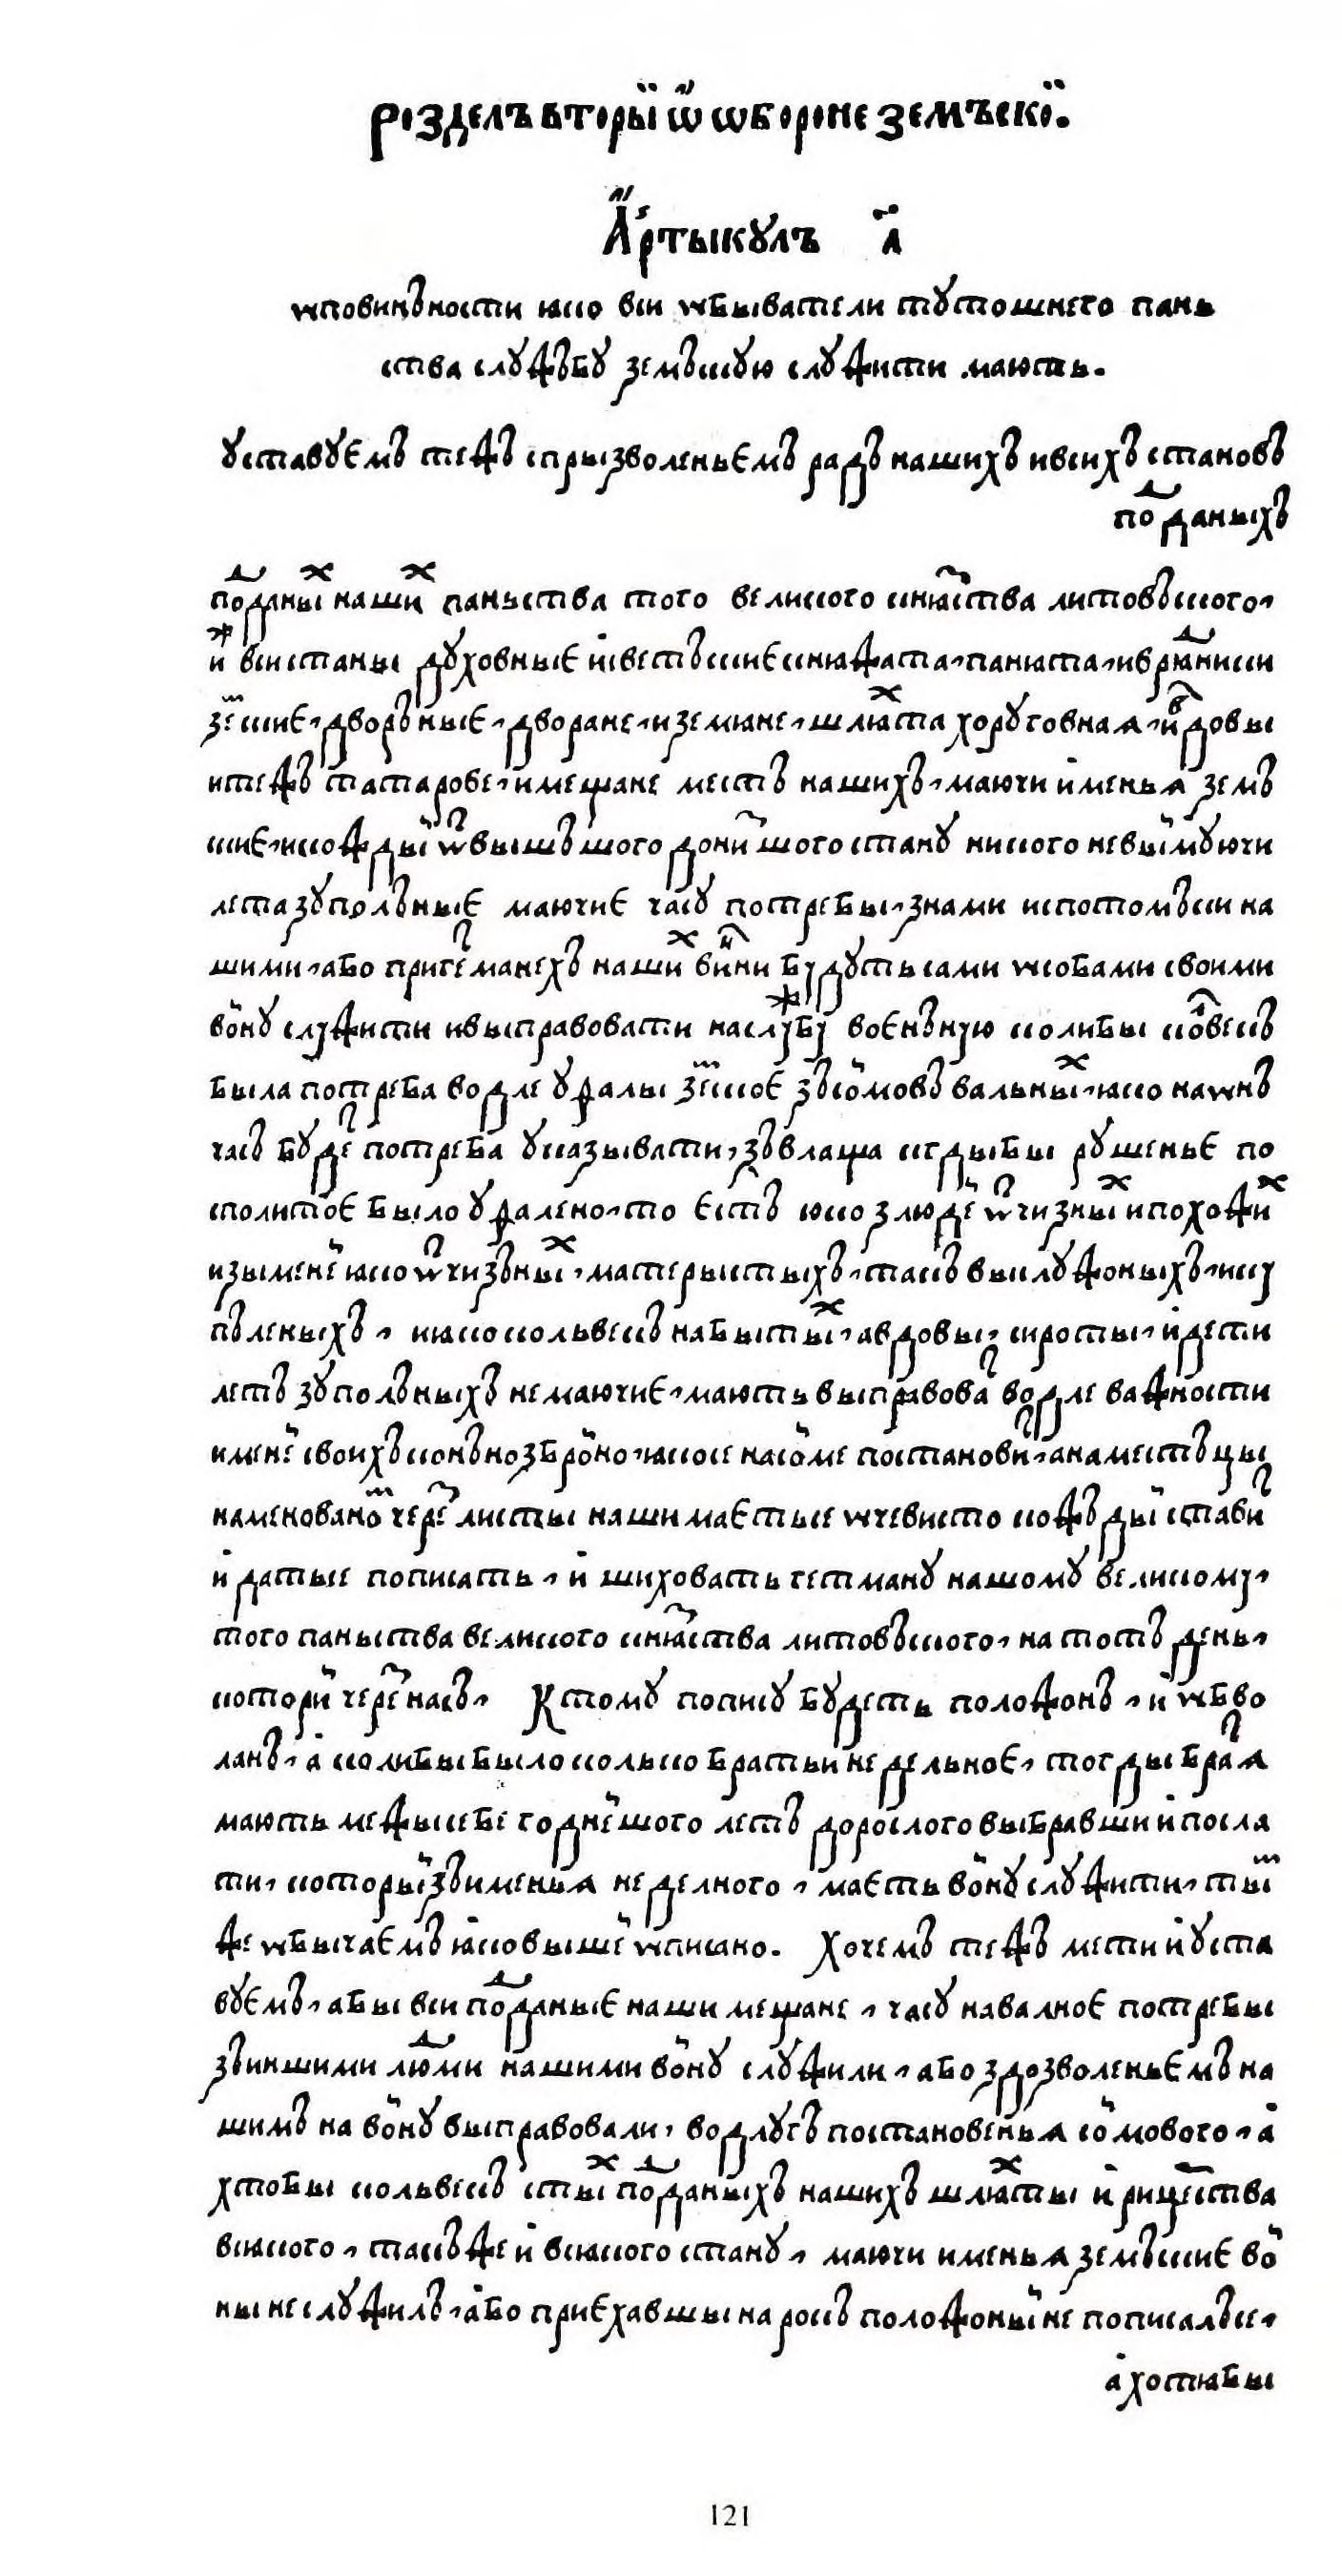 Розделъ вторый ѡ ѡбороне земъской.
Артыкулъ а҃
ѡ повинъности яко вси ѡбыватели тутошнего панъ
ства служъбу земъскую служити мають.
Уставуемъ тежъ с призволеньемъ радъ наших и всихъ становъ
подданыхъ
подданыхъ нашихъ паньства того великого кнюства литовъского,
иж вси станы духовные и светъские кнюжата, панюта, и врюдники
земские, дворъные, дворане, и земюне, шлюхта хоруговная, и вдовы
и тежъ татарове, и мещане местъ нашихъ, маючи именья земъ
ские, и кождый ѡт вышъшого до нишого стану никого не выймуючи
лета зуполъные маючие часу потребы, з нами и с потомъки на
шими, або при гетманехъ нашихъ винни будуть сами ѡсобами своими
войну служити и выправовати на службу военъную коли бы колвекъ
была потреба водле уфалы земское зъ соймовъ вальныхъ, яко на ѡнъ
часъ будеть потреба указывати, зъвлаща кгды бы рушенье по
сполитое было уфалено, то естъ яко з людей ѡтчизныхъ и похожихъ
и з ыменей яко ѡтчизъныхъ, матерыстыхъ, такъ выслужоныхъ, и ку
пъленыхъ, и яко кольвекъ набытыхъ, а вдовы, сироты, и дети
летъ зуполъныхъ не маючие, мають выправовати водле важности
именей своихъ конъно збройно, яко се на сойме постановить, а на местъцы
наменованомъ через листы наши маеть се ѡчевисто кожъдый ставити
и дать се пописать, и шиховать гетману нашому великому,
того паньства великого кнюства литовъского, на тотъ день,
который через насъ, К тому попису будеть положонъ, и ѡбво
ланъ, а коли бы было колько братьи неделъное, тогды братя
мають межы себе годнейшого летъ дорослого выбравши и посла
ти, который зъ именья неделного, маеть войну служити, тымъ
же ѡбычаемъ яко вышей ѡписано. Хочемъ тежъ мети и уста
вуемъ, абы вси подданые наши мещане, часу навалное потребы
зъ иншими людми нашими войну служили, або з дозволеньемъ на
шимъ на войну выправовали, водлугъ постановенья соймового, а
хто бы кольвекъ с тых подданыхъ нашихъ шлюхты и рицерства
всюкого, такъже и всюкого стану, маючи именья земъские вой
ны не служилъ, або приехавшы на рокъ положоный не пописалъсе,
а хотюбы
121